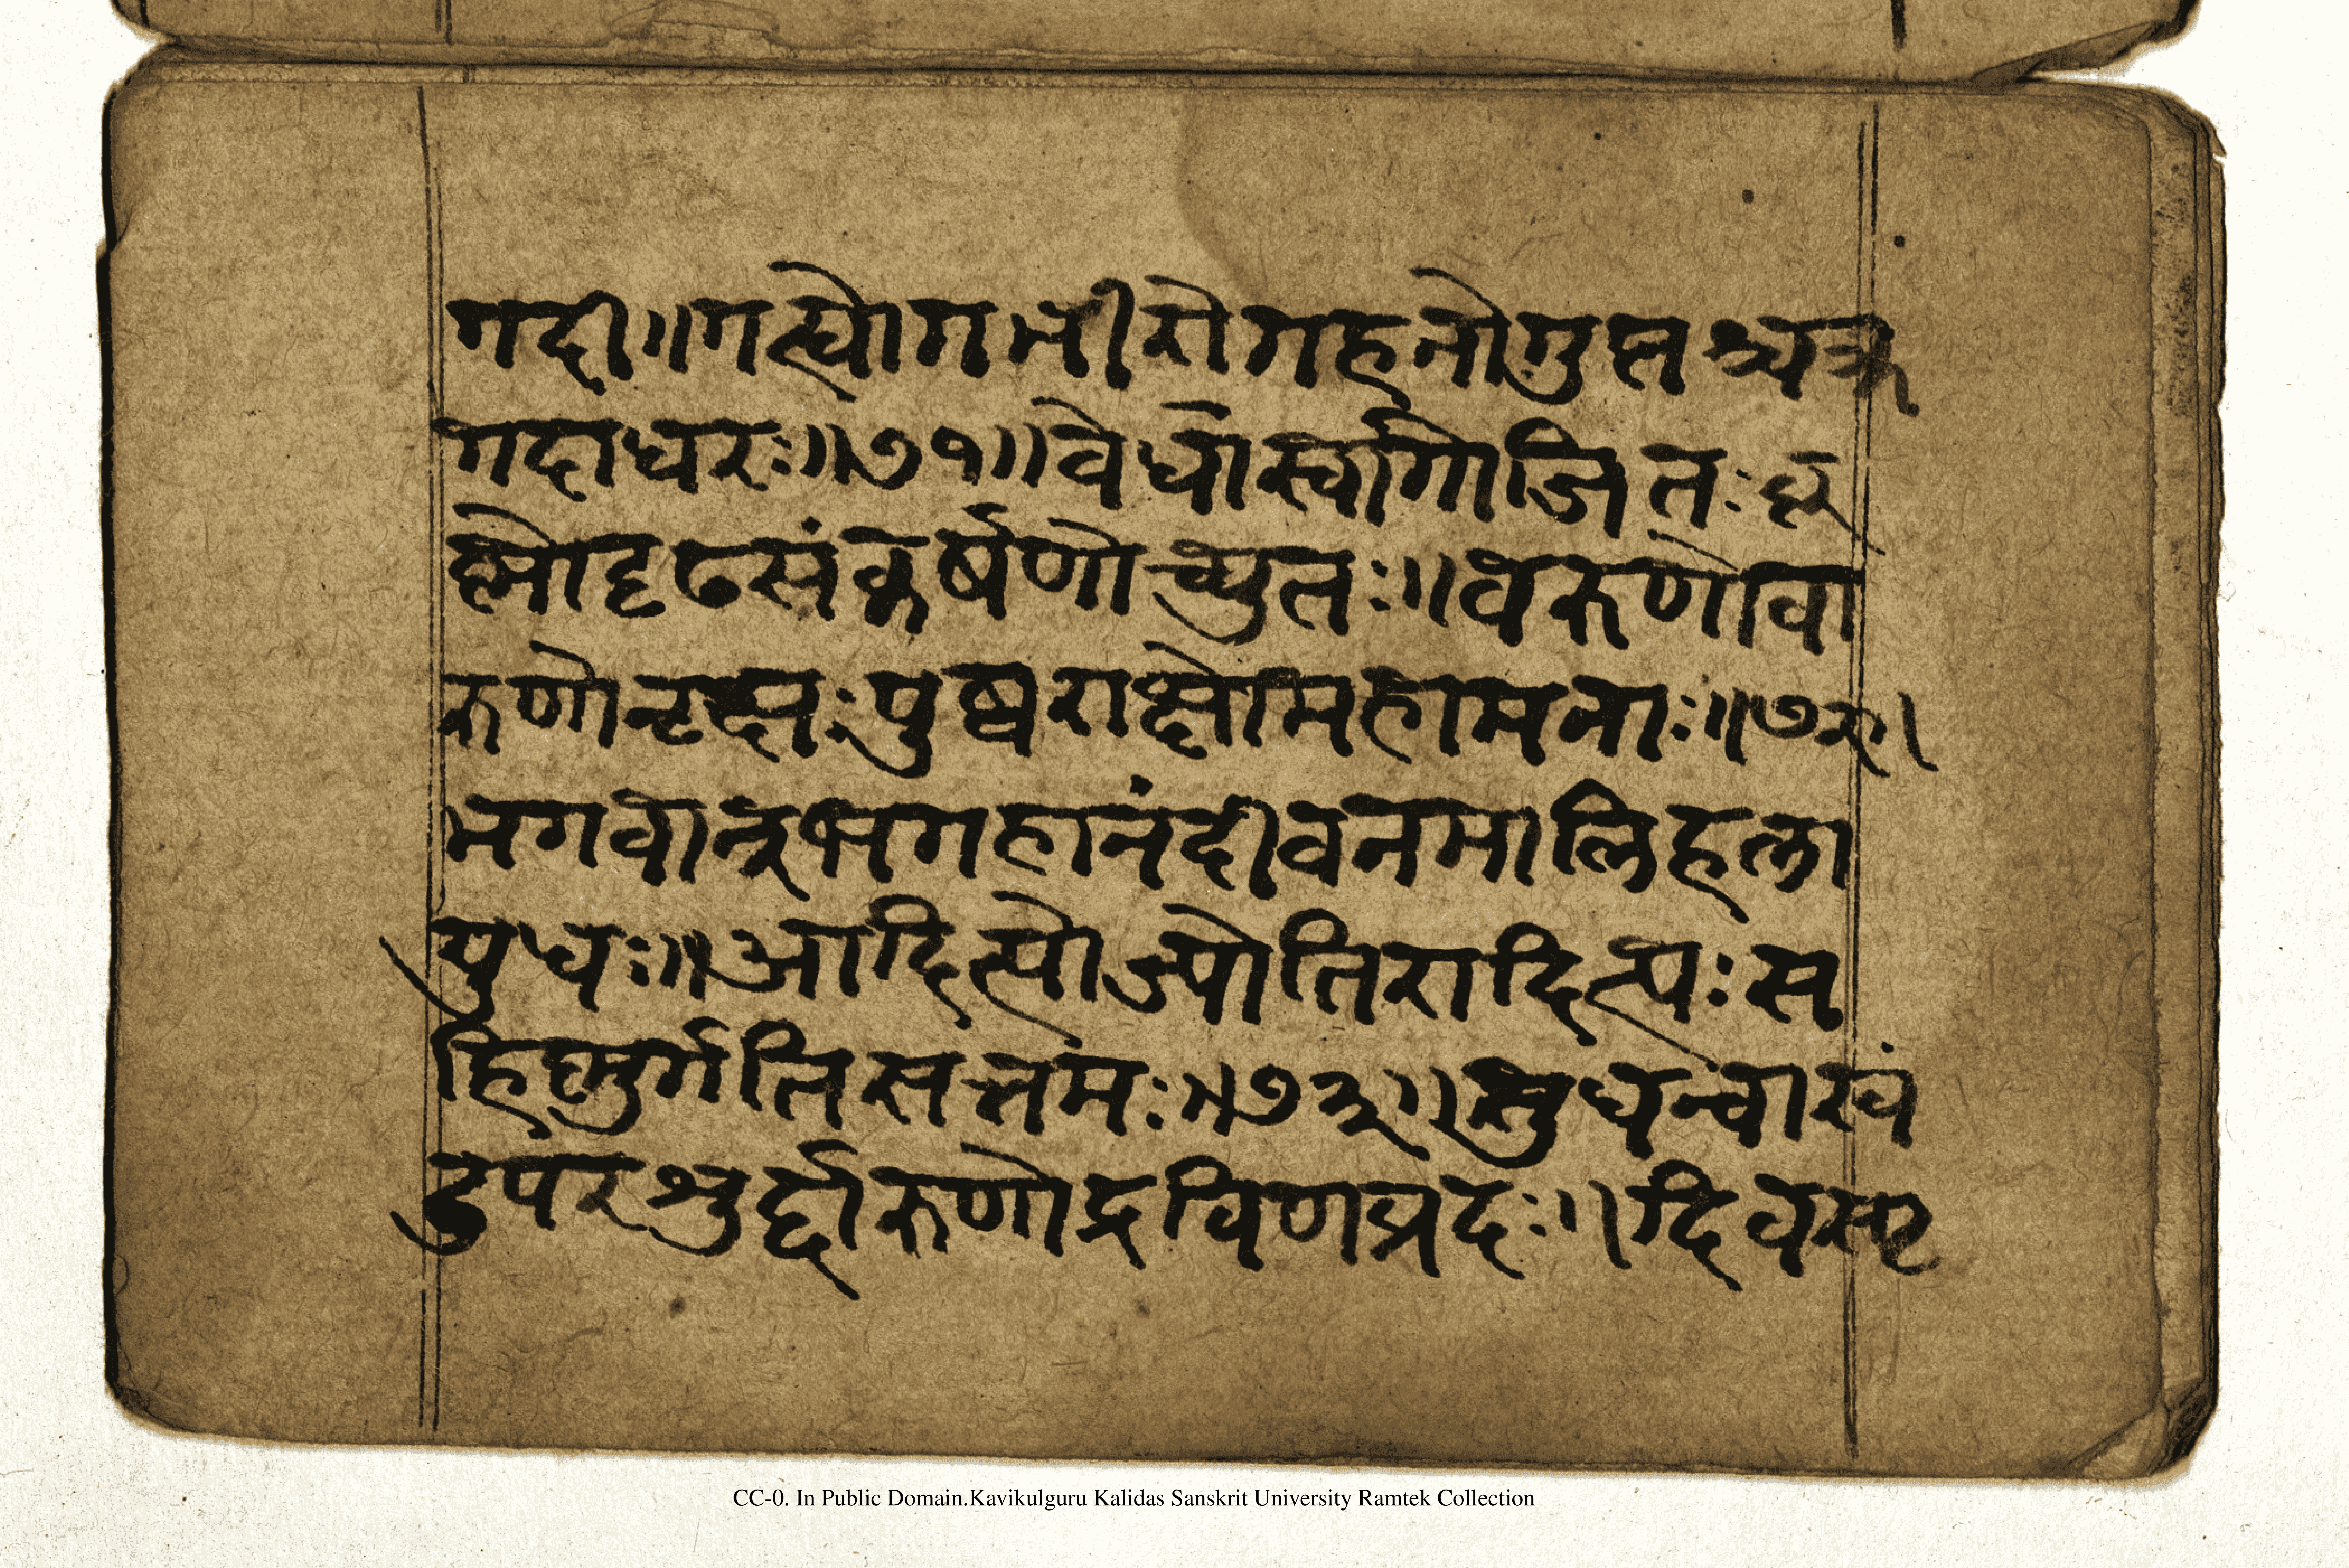 गदी॥गुत्द्योगभीरोगहनोगुप्तश्चक्र
गदाधरः॥७१॥वेधास्वांगोजितःकृ
ष्मोदृढसंकर्षणोच्युतः॥वरुणोवा
रुणोवृक्षःपुष्कराक्षोमहामनाः॥७२॥
भगवान्भगहानंदीवनमालिहला
युधः॥आदित्योज्योतिरादित्यःस
हिष्मुर्गतिसत्तमः॥७३॥सुधन्वाखं
डपंरशुर्द्दारुणोद्रविणप्रदः॥दिवस्पृ
CC-0. In Public Domain.Kavikulguru Kalidas Sanskrit University Ramtek Collection